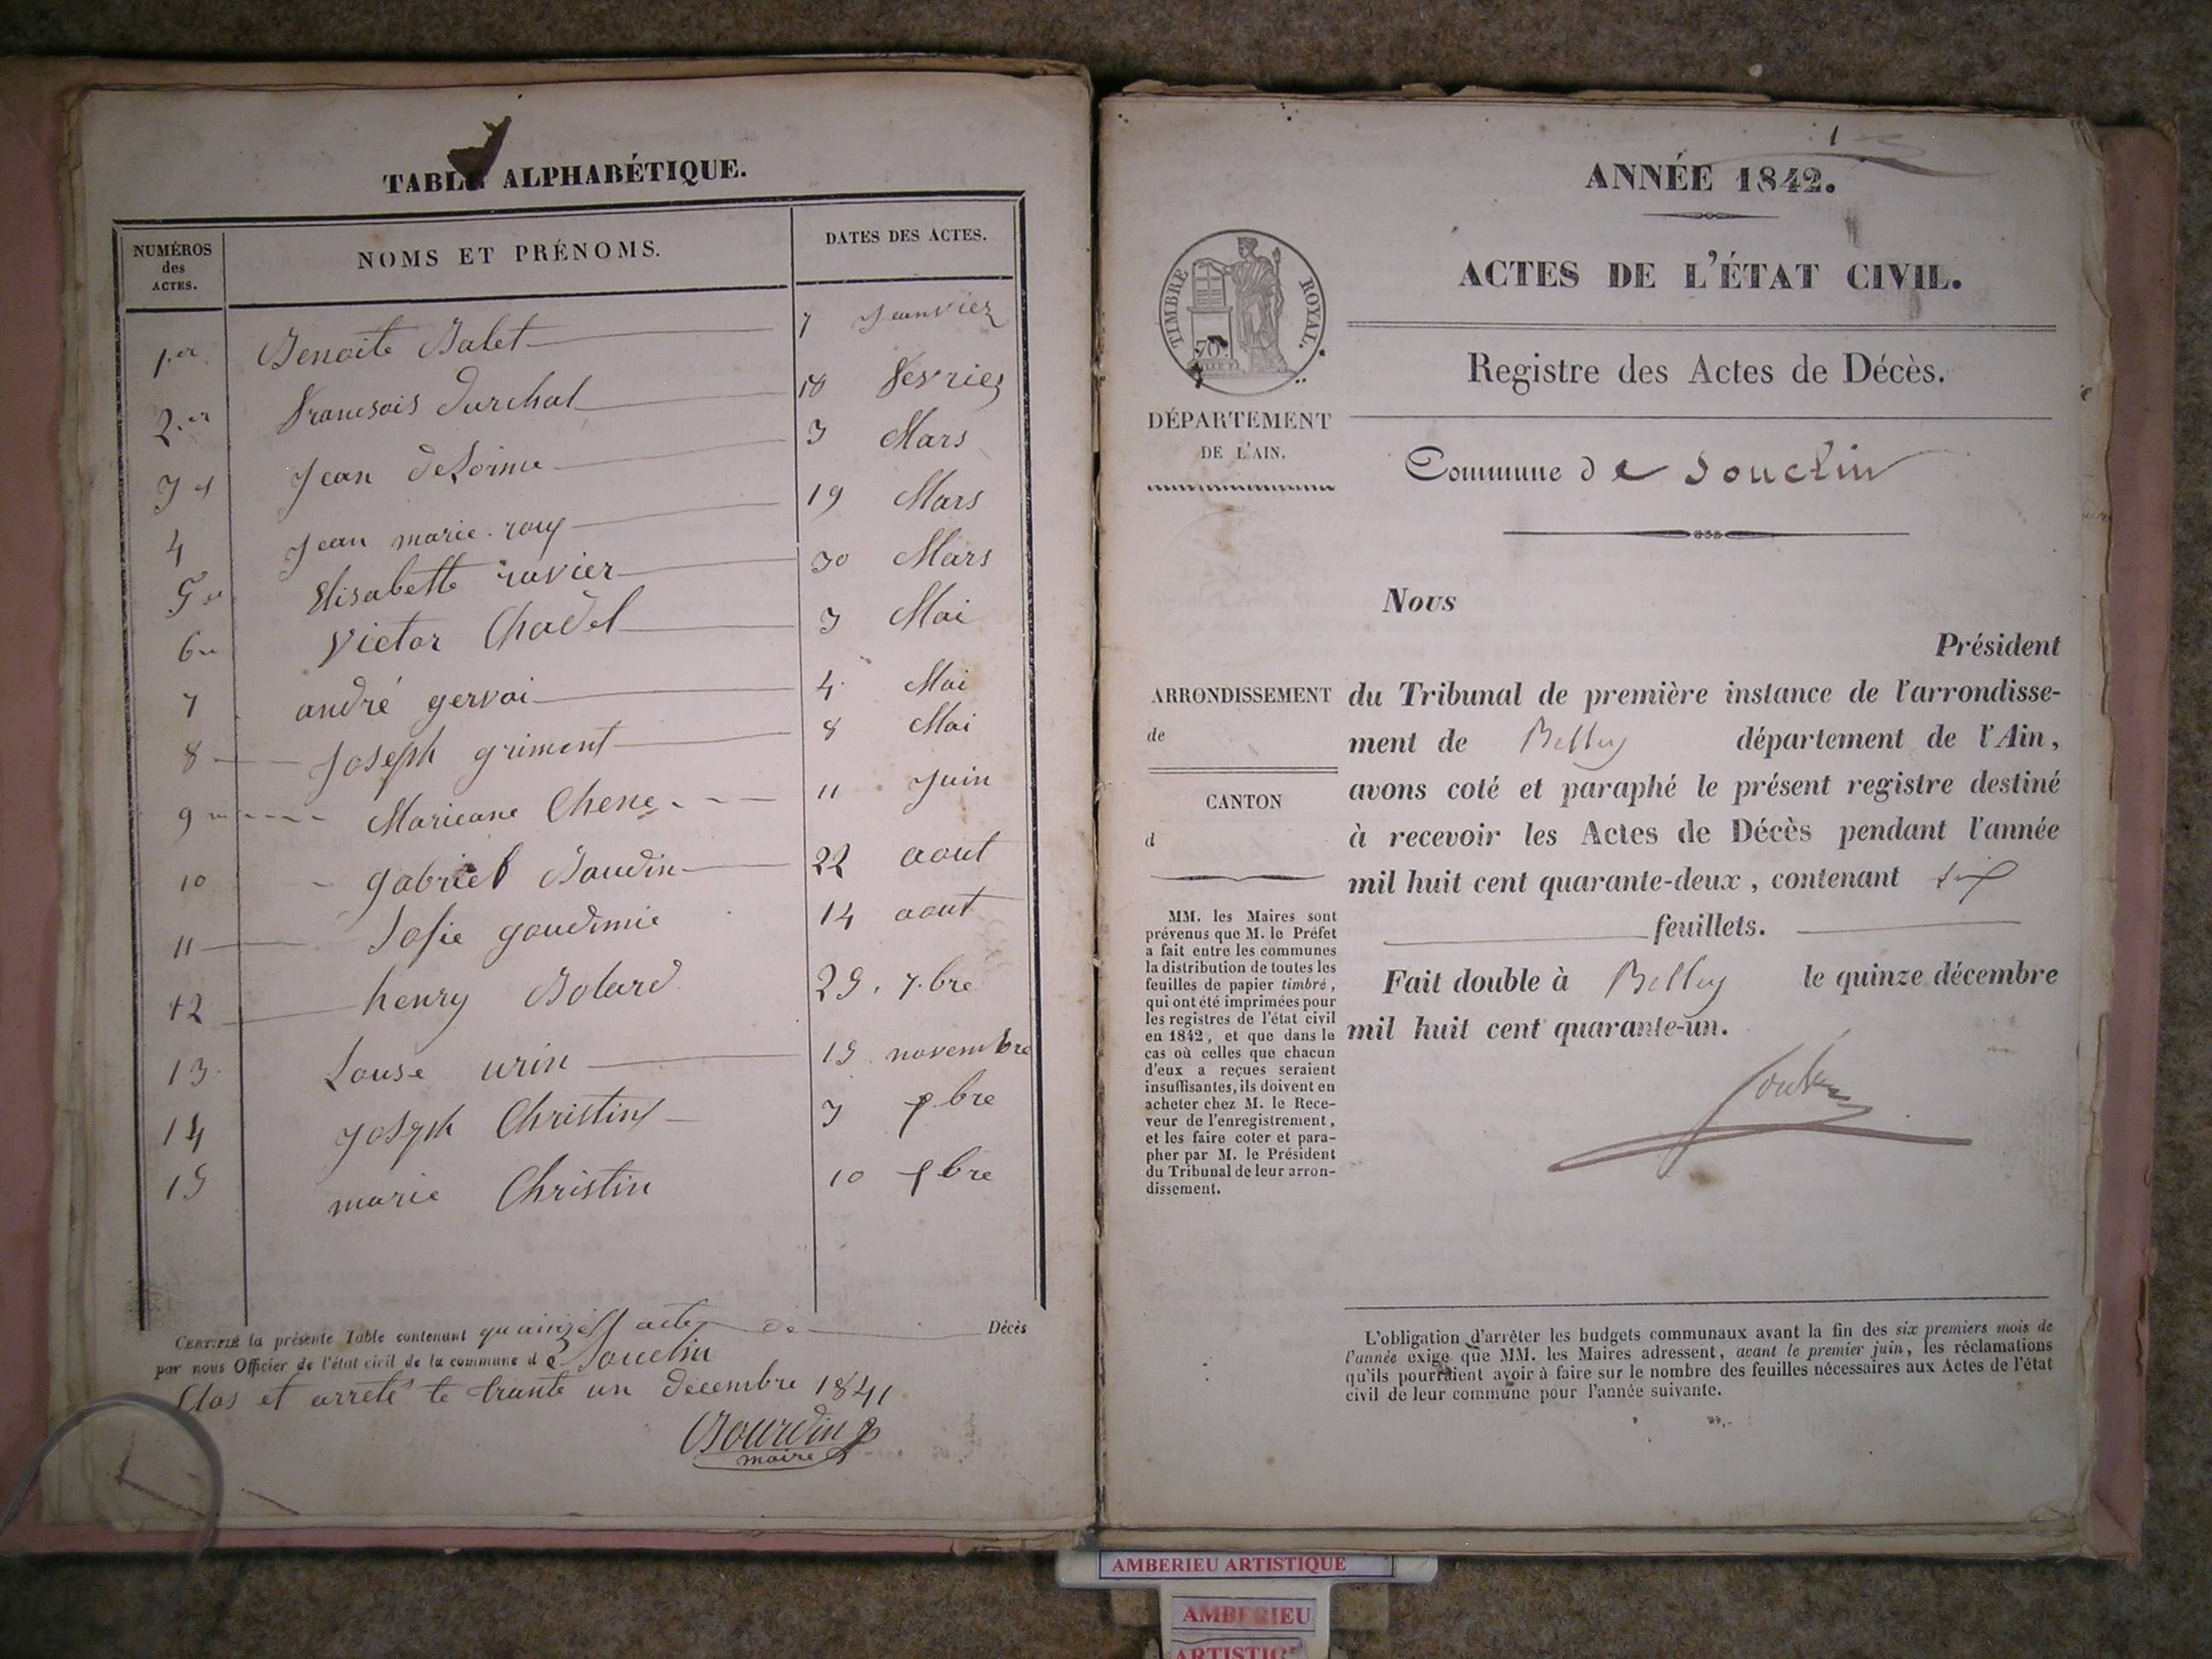 TABLE ALPHABÉTIQUE.
NUMÉROS
des
ACTES.
NOMS ET PRÉNOMS.
DATES DES ACTES.
1.er Benoite Balet 7 Janvier
2. francsois durchat 18 fevrier
3 Jean deLorme 3 Mars
4 Jean marie rouy 19 Mars
5 Elisabette ravier 30 Mars
6 Victor Chadel 3 Mai
7 andré gervai 4 Mai
8 Joseph grimont 8 Mai
9 Marieane Chene 11 Juin
10 gabriel Baudin 22 aout
11 Sofie goudimie 14 aout
12 henry Bolard 25. 7.bre
13 Louse urin 15 novembre
14 Joseph Christin 3 bre
15 marie Christin 10 bre
CERTIFIÉ la présente Table contenant actes de Décès
par nous Officier de l'état civil de la commune d e Souclin
Clos et arreté le trante un decembre 1841
Bourdin
maire
1
ANNÉE 1842.
ACTES DE L'ÉTAT CIVIL.
TIMBRE ROYAL.
70.
Registre des Actes de Décès.
DÉPARTEMENT
DE L'AIN.
Commune de Souclin
Nous
Président
ARRONDISSEMENT
de
CANTON
d
du Tribunal de première instance de l'arrondisse-
ment de Belley département de l'Ain,
avons coté et paraphé le présent registre destiné
à recevoir les Actes de Décès pendant l'année
mil huit cent quarante-deux, contenant six
feuillets.
Fait double à Belley le quinze décembre
mil huit cent quarante-un.
MM. les Maires sont
prévenus que M. le Préfet
a fait entre les communes
la distribution de toutes les
feuilles de papier timbré,
qui ont été imprimées pour
les registres de l'état civil
en 1842, et que dans le
cas où celles que chacun
d'eux a reçues seraient
insuffisantes, ils doivent en
acheter chez M. le Rece-
veur de l'enregistrement,
et les faire coter et para-
pher par M. le Président
du Tribunal de leur arron-
dissement.
L'obligation d'arrêter les budgets communaux avant la fin des six premiers mois de
l'année exige que MM. les Maires adressent, avant le premier juin, les réclamations
qu'ils pourraient avoir à faire sur le nombre des feuilles nécessaires aux Actes de l'état
civil de leur commune pour l'année suivante.
AMBERIEU ARTISTIQUE
AMBERIEU
ARTISTIQUE